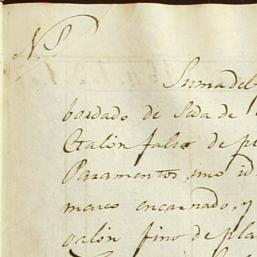 N. 5
Suma del
bordado de Seda de
Galón falso de p
Paramentos, uno id
marco encarnado, y
galón fino de pla